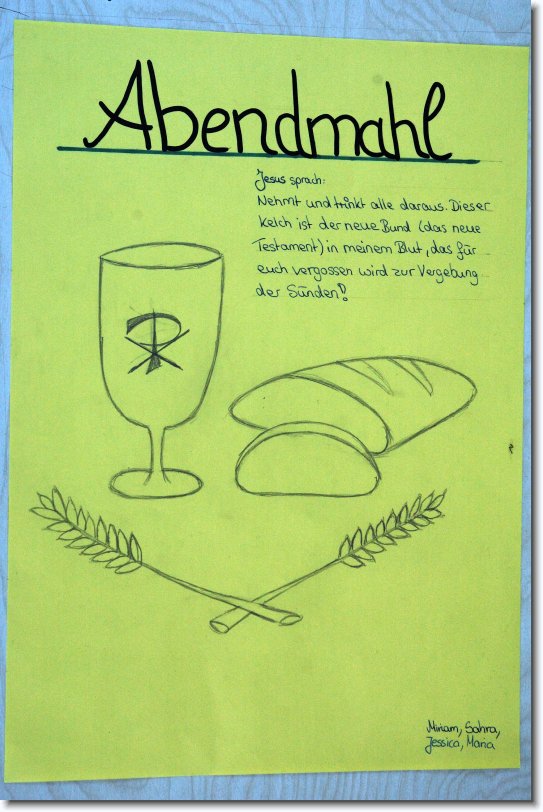 Abendmahl
Jesus sprach:
Nehmt und trinkt alle daraus. Dieser
Kelch ist der neue Bund (das neue
Testament) in meinem Blut, das für
euch vergossen wird zur Vergebung
der Sünden!
Miriam, Sahra,
Jessica, Maria